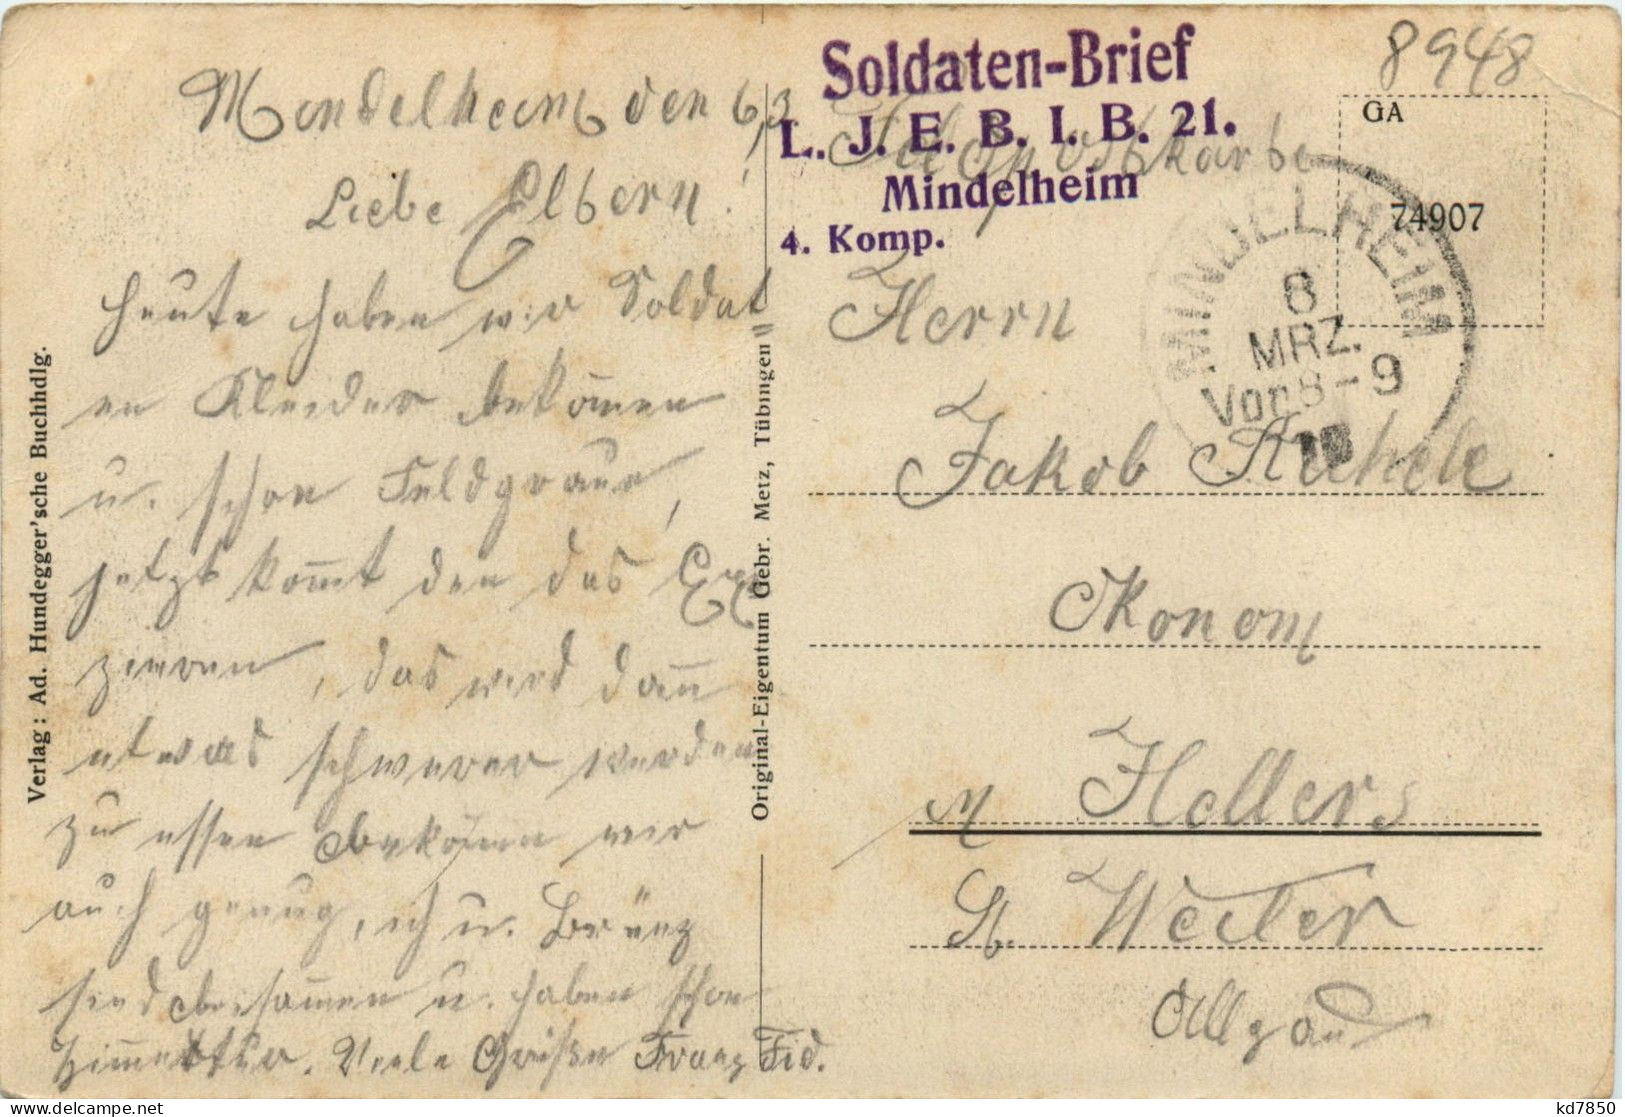 8948
Soldaten-Brief
L. J. E. B. I. B. 21.
Mindelheim
4. Komp.
Feldpostkarte
GA
74907
MINDELHEIM
8
MRZ.
Vor 8-9
Mindelheim den 6,3
Liebe Eltern!
Heute haben wir Soldat=
en Kleider bekom̄en
u. schon Feldgraue,
jetzt kom̄t den das Exer
zieren, das wird dan̄
etwas schwerer werden
zu essen bekom̄en wir
auch genug, ich u.
sind beisam̄en u. haben schon
Viele Grüße Franz Fid.
Herrn
Jakob
Ökonom
Hellers
St. Weiler
Allgäu
Verlag: Ad. Hundegger'sche Buchhdlg.
Original-Eigentum Gebr. Metz, Tübingen
kd7850